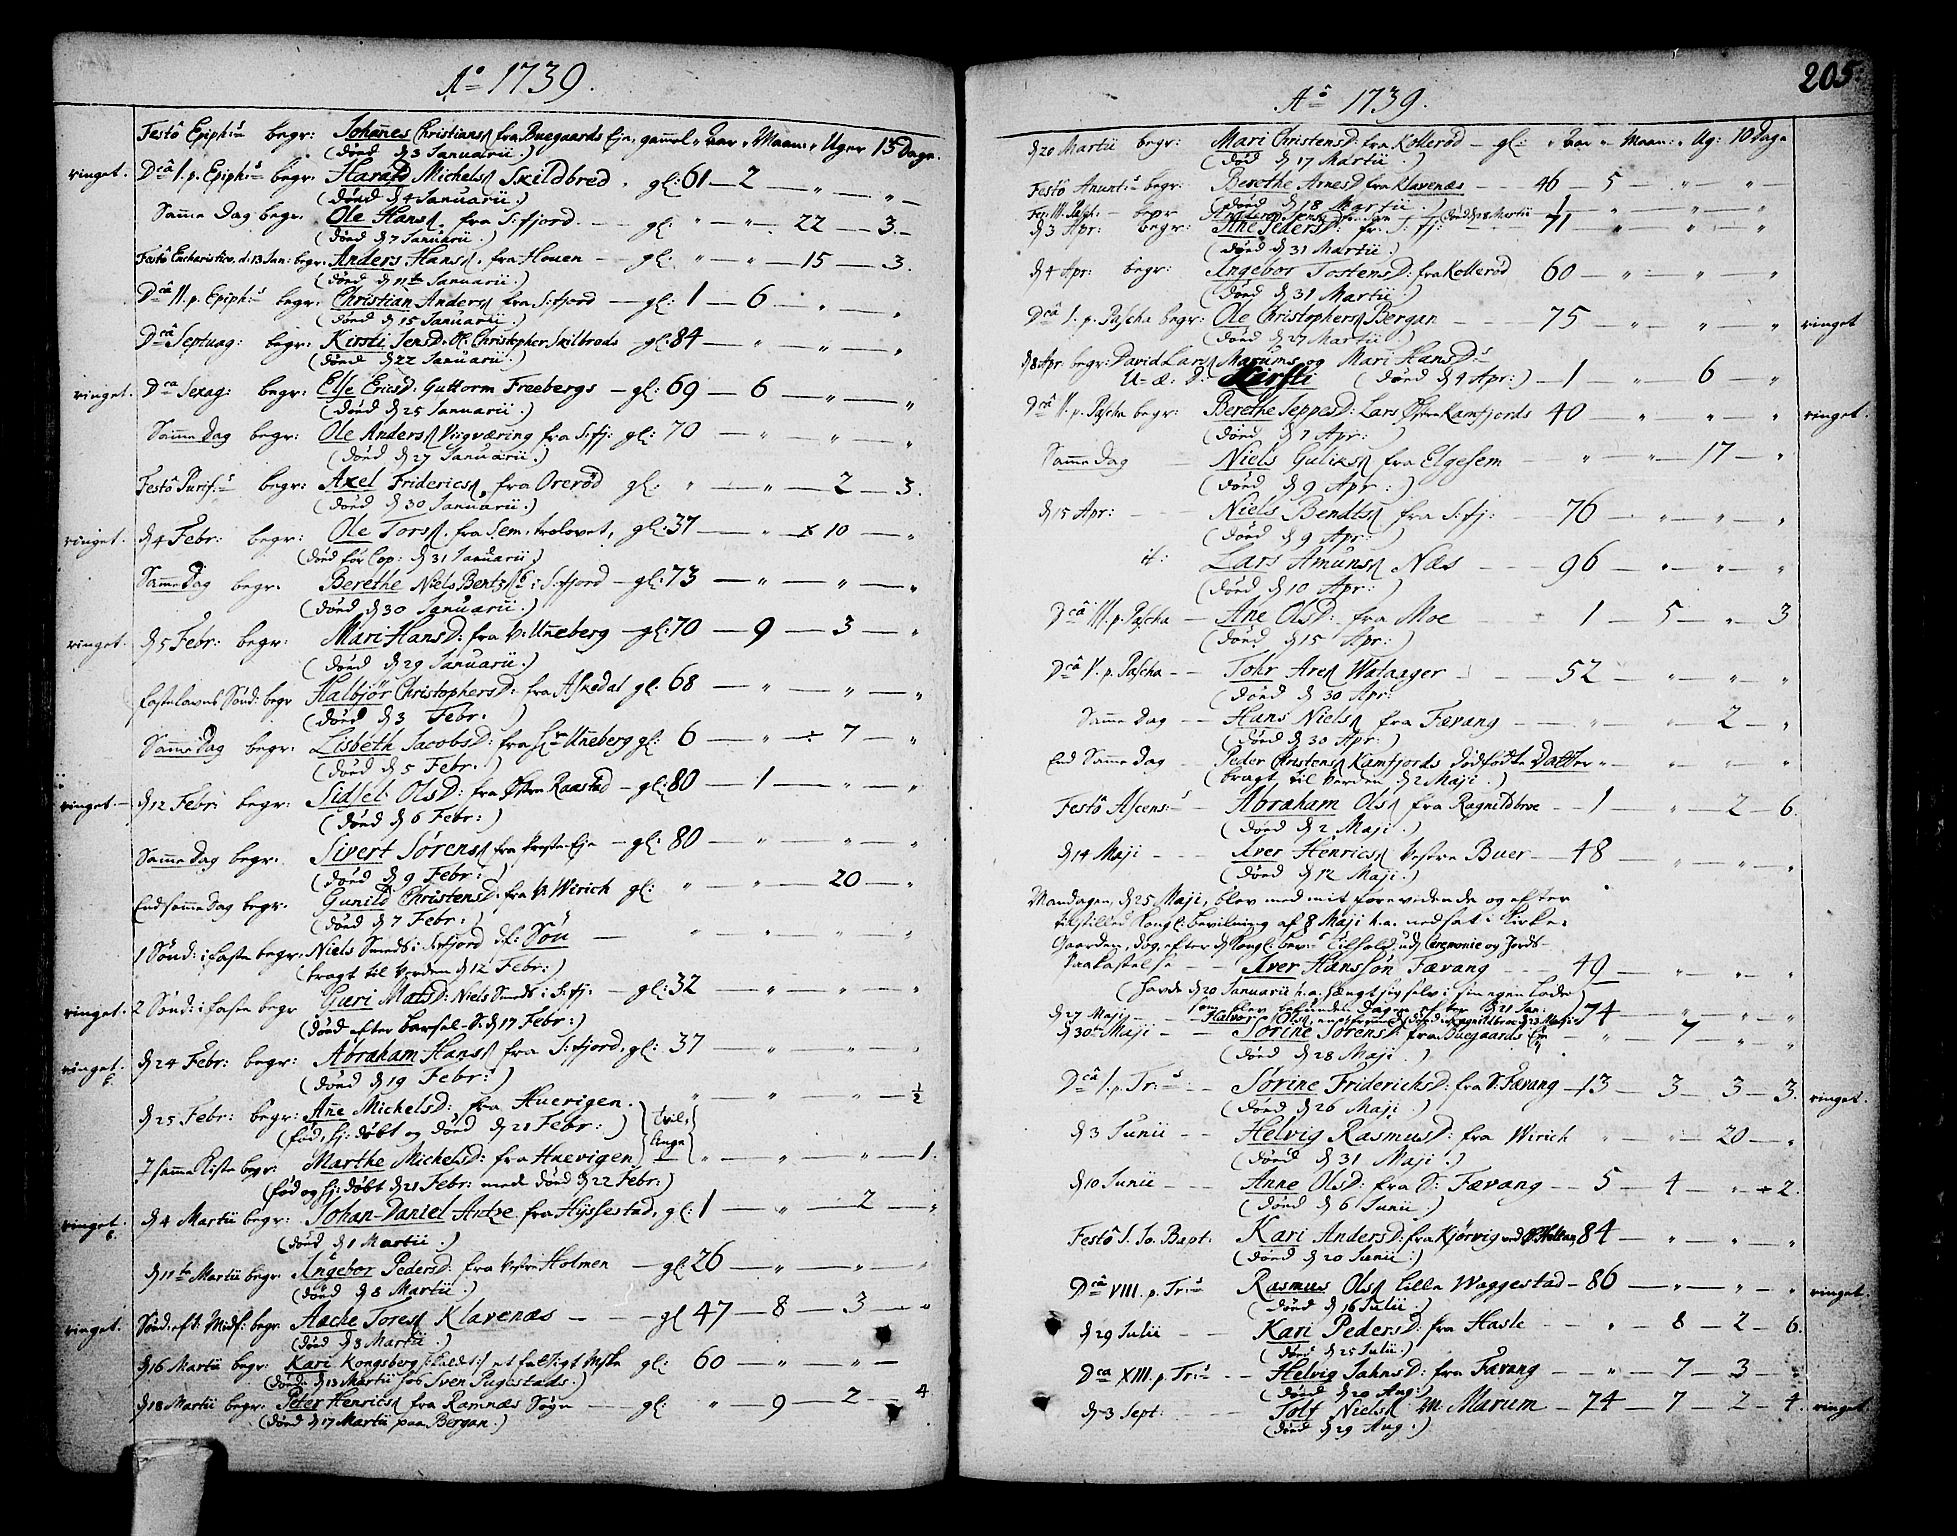 Aº 1739.
Festô Epiph:s begr: Johannes Christians fra Buegaards Eje, gammel " Aar " Maan: " Uger 13 Dage.
(døed d 3 Januarii.)
ringet. Dcâ I. p. Epiph:s begr: Harald Michels Skildbred, gl: 61 — 2 — " — "
(døed d 4 Januarii.)
Samme Dag begr: Ole Hans fra S:fjord gl: " — " — 22 — 3.
(døed d 7 Januarii.)
Festô Eucharistico. d. 13 Jan: begr. Anders Hans fra Houen gl: " — " — 15 — 3.
(døed d 11te Januarii.)
Dcâ II. p. Epiph:s begr: Christian Anders fra S:fjord gl: 1 — 6 — " — "
(døed d 15 Januarii.)
Dcâ Septuag: begr: Kirsti Jens D. Ol: Christopher Skilbreds gl: 84 — " — " — "
(døed d 22 Januarii.)
ringet. Dca Sexag: begr: Else Erics D: Guttorm Freebergs gl: 69 — 6 — " — "
(døed d 25 Januarii.)
Samme Dag begr: Ole Anders Virgværing fra S:fj: gl: 70 — " — " — "
(døed d 27 Januarii.)
Festô Purif:s begr: Axel Friderics fra Orerød gl: " — " — 2 — 3.
(døed d 30 Januarii.)
ringet. d 4 Febr: begr: Ole Tors fra Sem, trolovet, gl: 37 — " 10 — "
(døed før Cop: d 31 Januarii.)
Samme Dag begr: Berethe Niels Bents i S:fjord gl: 73 — " — " — "
(døed d 30 Januarii.)
ringet. d 5 Febr: begr: Mari Hans D: fra V: Unneberg gl: 70 — 9 — 3 — "
(døed d 29 Januarii.)
Fastelavns Sønd: begr Halbjør Christophers D: fra Askedal gl: 68 — " — " — "
(døed d 3 Febr:)
Samme Dag begr: Lisbeth Jacobs D: fra Unneberg gl: 6 — " ÷ 7 — "
(døed d 5 Febr.)
ringet d 12 Febr: begr: Sidsel Ols D: fra Østre Raastad gl: 80 — 1 — " — "
(døed d 6 Febr:)
Samme Dag begr: Sivert Sørens fra Preste-Eje gl: 80 — " — " — "
(døed d 9 Febr:)
End samme Dag begr: Gunild Christens D: fra V: Wirich gl: " — " — 20 — "
(døed d 7 Febr:)
1 Sønd: i Faste begr. Niels Smeds i S:fjord df: Søn " " " "
(bragt til Verden d 12 Febr:)
ringet. 2 Sønd: i Fasten begr Guri Mats D: Niels Smeds i S:fj. gl: 32 — " — " — "
(døed efter barsel-S: d 17 Febr:)
ringet. d 24 Febr: begr: Abraham Hans fra S:fjord, gl: 37 — " — " — "
(døed d 19 Febr:)
d 25 Febr: begr: Anne Michels D: fra Huevigen. " — " — " — ½
(fød, hj: døbt og døed d 21 Febr:) Tvil:
I samme Kiste begr: Marthe Michels D: fra Huevigen Linge " — " — " — 1.
(fød og hj: døbt d 21 Febr: mens døed d 22 Febr:)
ringet. d 4 Martii begr: Johan-Daniel Antze fra Hyssestad, gl: 1 — " — 2 — "
(døed d 1 Martii.)
d 11te Martii begr: Ingebor Peders D: fra Vestre Holmen gl: 26 — " — " — "
(døed d 8 Martii.)
ringet. Sønd. eft: Midf: begr. Aache Tores Klavenæs gl 47 — 8 — 3 — "
(døed d 3 Martii.)
d 16 Martii begr: Kari Kongsberg kaldt: et fattigt Mske gl: 60 — " — " —
(døed d 13 Martii hos Sven Pugestads.)
d 18 Martii begr: Peter Henrics fra Ramnæs Sogn gl: " — 9 — 2 — 4
(døed d 17 Martii paa Bergan.)
205.
Aº 1739.
d 20 Martii begr: Mari Christens D: fra Kollerød gl: " Aar " Maan: " Ug: 10 Dage
(døed d 17 Martii.)
Festô Anunt:s begr: Berethe Arnes D fra Klavenæs 46 — 5 — " — "
(døed d 18 Martii.)
Fer: III. Pasch:
d 3 Apr: begr: Ane Peders D: fr: S:fj: 71 — " — " — "
(døed d 31 Martii.)
d 4 Apr: begr: Ingebor Tostens D: fra Kollerød 60 — " — " — "
(døed d 31 Martii.)
Dcâ I. p. Pascha begr: Ole Christophers Bergan 75 — " — " — " ringet
(døed d 27 Martii.)
d 8 Apr. begr: David Lars Marums og Mari Hans D:s
U: æ: D: Kirsti (døed d 4 Apr:) 1 — " — 6 — "
Dcâ II. p. Pascha begr: Berethe Jeppes D: Lars Østre Kamfjords 40 " " " ringet.
(døed d 7 Apr:)
Samme Dag Niels Guliks fra Elgesem " — " — 17 — "
(døed d 9 Apr:)
d 15 Apr: Niels Bendts fra S:fj: 76 — " — " — "
(døed d 9 Apr:)
it: Lars Amuns Næs 96 — " — " — "
(døed d 10 Apr:)
Dcâ III. p. Pascha Ane Ols D: fra Moe 1 — 5 — " — 3
(døed d 15 Apr:)
Dcâ V. p. Pascha Tohr Ares Wataager 52 — " — " — "
(døed d 30 Apr:)
Samme Dag Hans Niels fra Fævang " — " — 2 — "
(døed d 30 Apr:)
End Samme Dag Peder Christens Kamfjords dødfødte Datter " " " "
(bragt til Verden d 2 Maji.)
Festô Ascens:s Abraham Ols fra Ragnildbroe 1 — " — 2 — 6.
(døed d 2 Maji.)
d 14 Maji Iver Henrics Vestre Buer 48 — " — " — "
(døed d 12 Maji.)
Mandagen d 25 Maji, blev med mit forevidende og efter
tilstilled Kongl: bevilning af 8 Maji h.a. nedsat i Kirke-
Gaarden, dog, efter d Kongl: bev:s Tilhold, ud Ceremonie og Jords-
Paakastelse Iver Hanssøn Fævang 49 — " — " — "
(Havde d 20 Januarii h.a. hængt sig selv i sin egen Lade)
som blev befunden Dagen efter d 21 Jan:
d 27 Maji Halvor Ols døed i Ragnildbroe d 23 Maji 74 — " — " — "
d 30te Maji Sørine Sørens D: fra Buegaards Eje " — 7 — " — "
(døed d 28 Maji.)
Dcâ I. p. Tr:s Sørine Friderichs D: fra S: Fævang 13 — 3 — 3 — 3. ringet.
(døed d 26 Maji.)
d 3 Junii Helvig Rasmus D: fra Wirich " — " — 20 — "
(døed d 31 Maji.)
d 10 Junii Anne Ols D: fra S: Fævang 5 — 4 — " ÷ 2.
(døed d 6 Junii.)
Festô S. Jo. Bapt: Kari Anders D: fra Kjørvig ved Holtan 84 — " — " — "
(døed d 20 Junii.)
Dca VIII. p. Tr:s Rasmus Ols Lille Waggestad 86 — " — " — " ringet.
(døed d 16 Julii.)
d 29 Julii Kari Peders D: fra Hasle " — 8 — 2 — 6.
(døed d 25 Julii.)
Dca XIII. p. Tr:s Helvig Jahns D: fra Fævang " — 7 — 3 — "
(døed d 20 Aug:)
d 3 Sept: Tolf Niels Marum 74 — 7 — 2 — 4. ringet.
(døed d 29 Aug.)